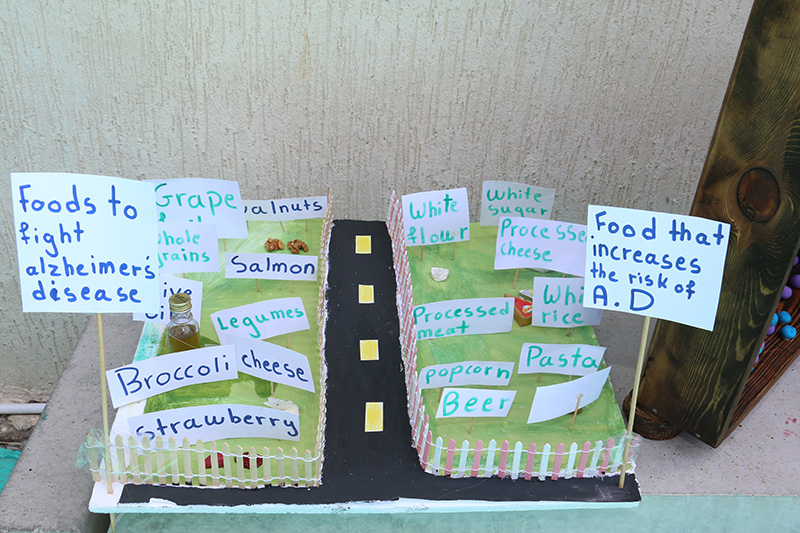 Foods to
fight
alzheimer's
disease
Grape
Whole
grains
Walnuts
Salmon
Legumes
Broccoli
cheese
Strawberry
White
flour
White
sugar
Processed
cheese
Processed
meat
rice
popcorn
Pasta
Beer
Food that
increases
the risk of
A.D